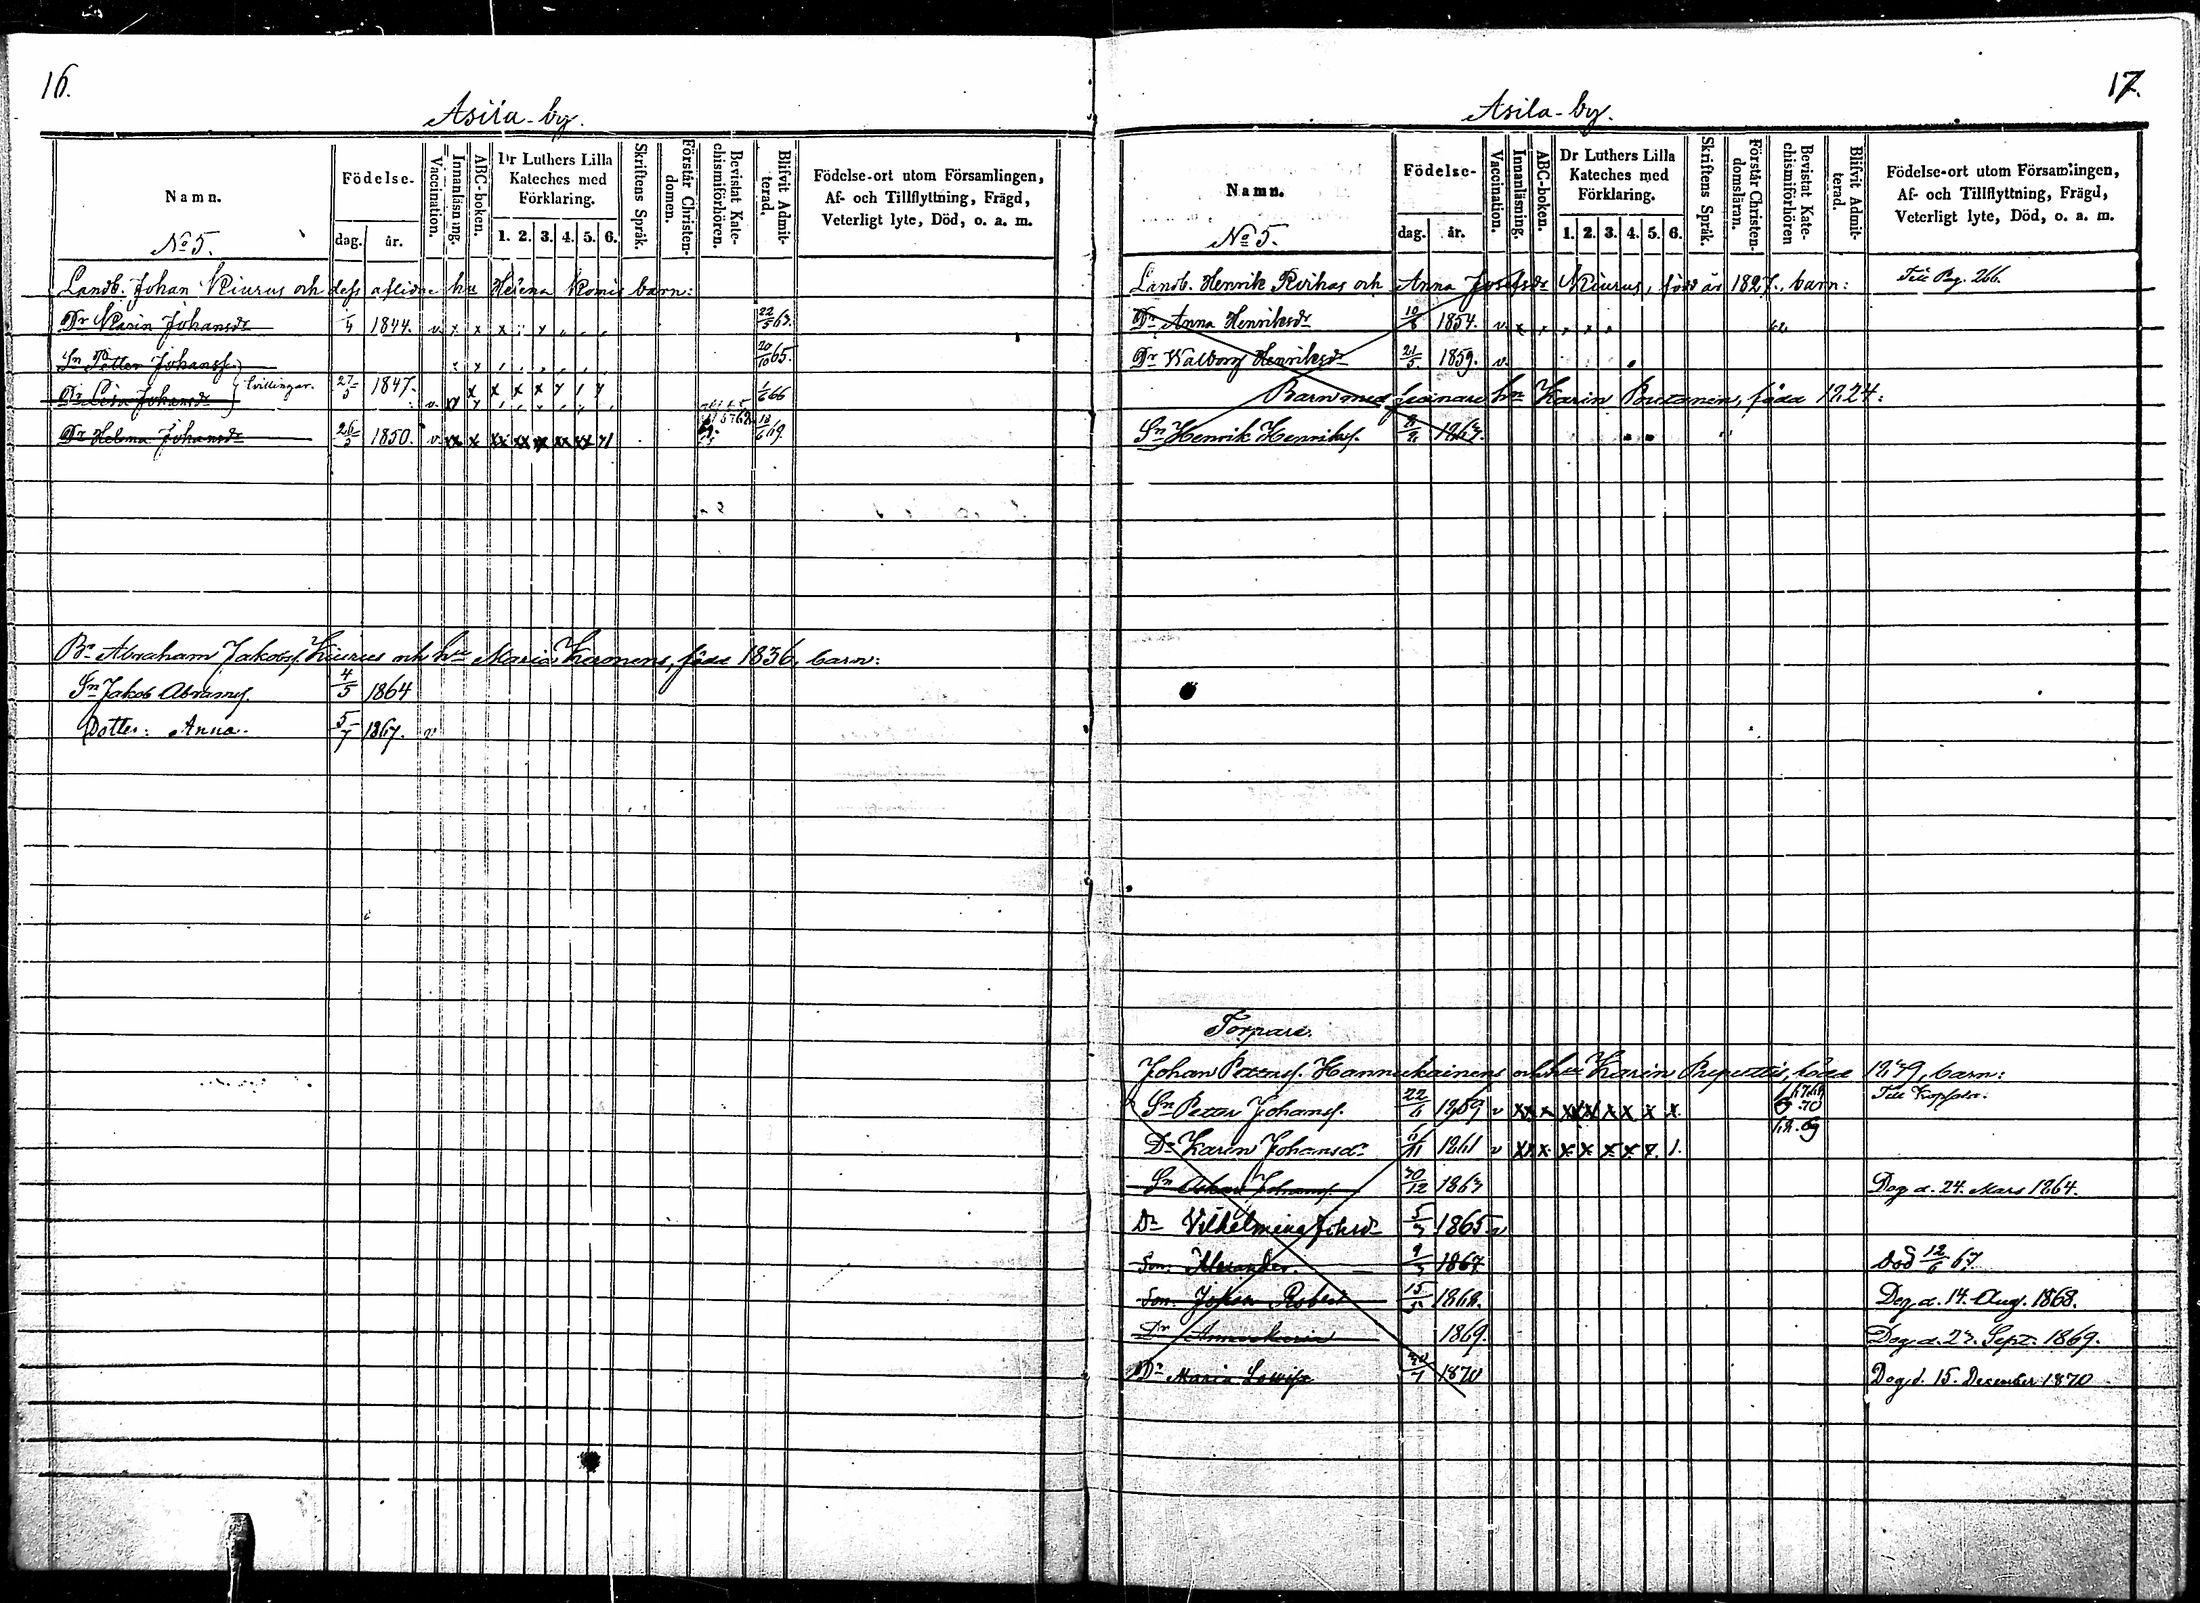 16.
Asila-by.
Namn.
No 5.
Födelse-
dag.
år.
Vaccination.
Innanläsning.
ABC-boken.
Dr Luthers Lilla
Kateches med
Förklaring.
1. 2. 3. 4. 5. 6.
Skriftens Språk.
Förstår Christen-
domen.
Bevistat Kate-
chismiförhören.
Blifvit Admit-
terad.
Födelse-ort utom Församlingen,
Af- och Tillflyttning, Frägd,
Veterligt lyte, Död, o. a. m.
Landb. Johan Kiurus och dess aflidne hu Helena Komis barn:
Dr Karin Johansdr 1844. v. 22/5 63.
Sn Petter Johanss. 20/10 65.
tvillingar. 27/5 1847.
Dr Lisa Johansdr v. 66
Dr Helena Johansdr 1850. v. 69.
Bn Abraham Jakobss. Kiurus och hu Maria Karonens, född 1836, barn:
Sn Jakob Abramss. 4/5 1864
Dotter: Anna. 5/7 1867. v
17.
Asila-by.
Namn.
No 5.
Födelse-
dag.
år.
Vaccination.
Innanläsning.
ABC-boken.
Dr Luthers Lilla
Kateches med
Förklaring.
1. 2. 3. 4. 5. 6.
Skriftens Språk.
Förstår Christen-
domsläran.
Bevistat Kate-
chismiförhören
Blifvit Admit-
terad.
Födelse-ort utom Församlingen,
Af- och Tillflyttning, Frägd,
Veterligt lyte, Död, o. a. m.
Landb. Henrik Pirhas och Anna Josefsdr Kiurus, född år 1827, barn: Till Pag. 266.
Dr Anna Henriksdr 10/8 1854. v.
Dr Walborg Henriksdr 21/5. 1859. v.
Barn med senare hu Karin Poutanen, född 1824:
Sn Henrik Henrikss. 1863.
Torpare.
Johan Peterss. Hannukainens och hu Karin Pepottis, född 1839, barn:
Sn Petter Johanss. 1859 v Till Kopsala.
Dr Karin Johansdr 1861 v
Sn Johanss. 30/12 1863 Dog d. 24. Mars 1864.
Dr Vilhelmina Johsdr 5/7 1865 v
Son: Alexander. 1867 död 12/6 67.
Son: Johan Robert 15/5 1868. Dog d. 14. Aug. 1868.
Dr Annastina 1869. Dog d. 23. Sept. 1869.
Dr Maria Lovisa 1870 Dog d. 15. December 1870